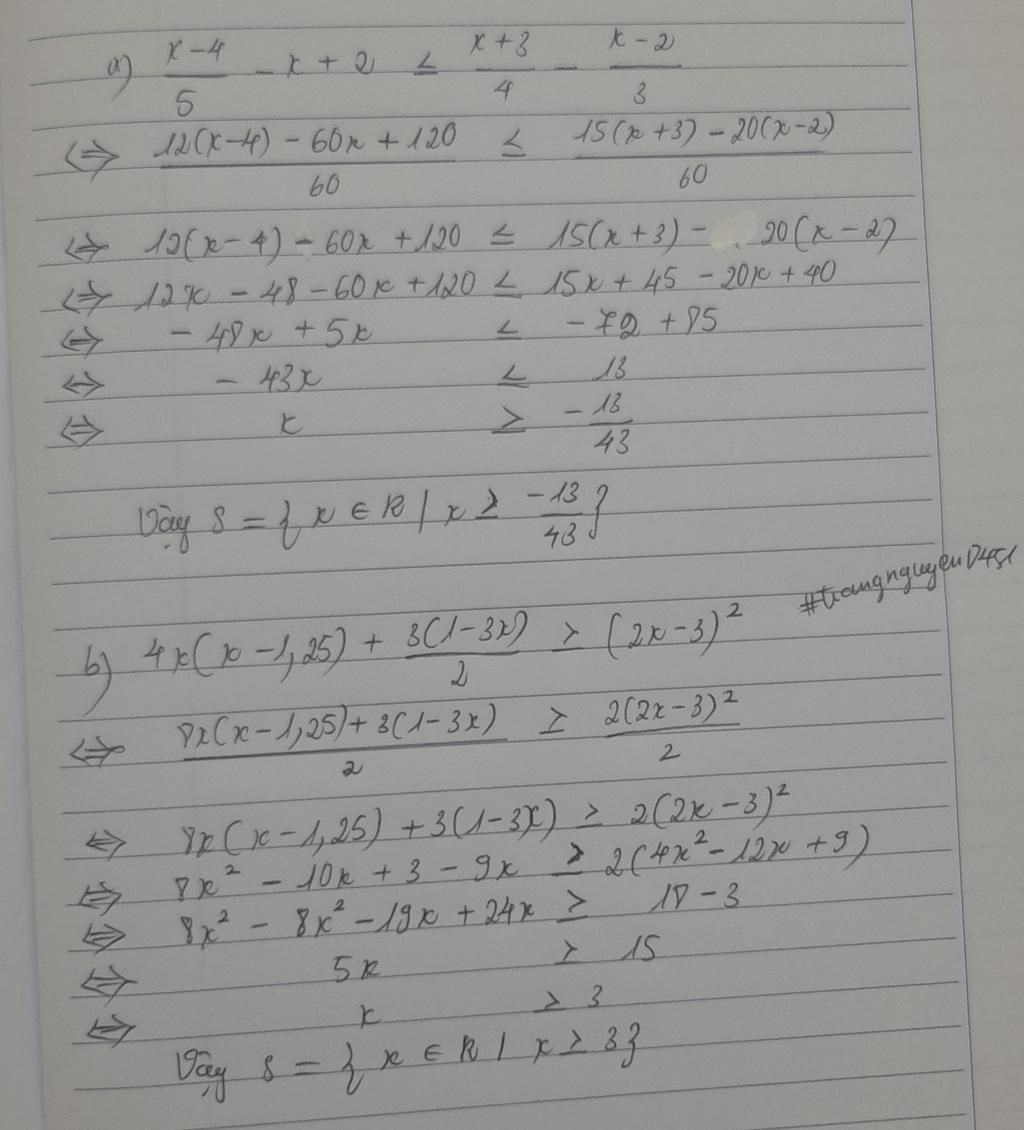 a) (x-4)/5 - x + 2 ≤ (x+3)/4 - (x-2)/3
⇔ (12(x-4) - 60x + 120)/60 ≤ (15(x+3) - 20(x-2))/60
⇔ 12(x-4) - 60x + 120 ≤ 15(x+3) - 20(x-2)
⇔ 12x - 48 - 60x + 120 ≤ 15x + 45 - 20x + 40
⇔ - 48x + 5x ≤ - 72 + 85
⇔ - 43x ≤ 13
⇔ x ≥ -13/43
Vậy S = { x ∈ R / x ≥ -13/43 }
#trangnguyen0451
b) 4x(x - 1,25) + 3(1-3x)/2 ≥ (2x-3)²
⇔ (8x(x-1,25) + 3(1-3x))/2 ≥ 2(2x-3)²/2
⇔ 8x(x-1,25) + 3(1-3x) ≥ 2(2x-3)²
⇔ 8x² - 10x + 3 - 9x ≥ 2(4x² - 12x + 9)
⇔ 8x² - 8x² - 19x + 24x ≥ 18 - 3
⇔ 5x ≥ 15
⇔ x ≥ 3
Vậy S = { x ∈ R / x ≥ 3 }